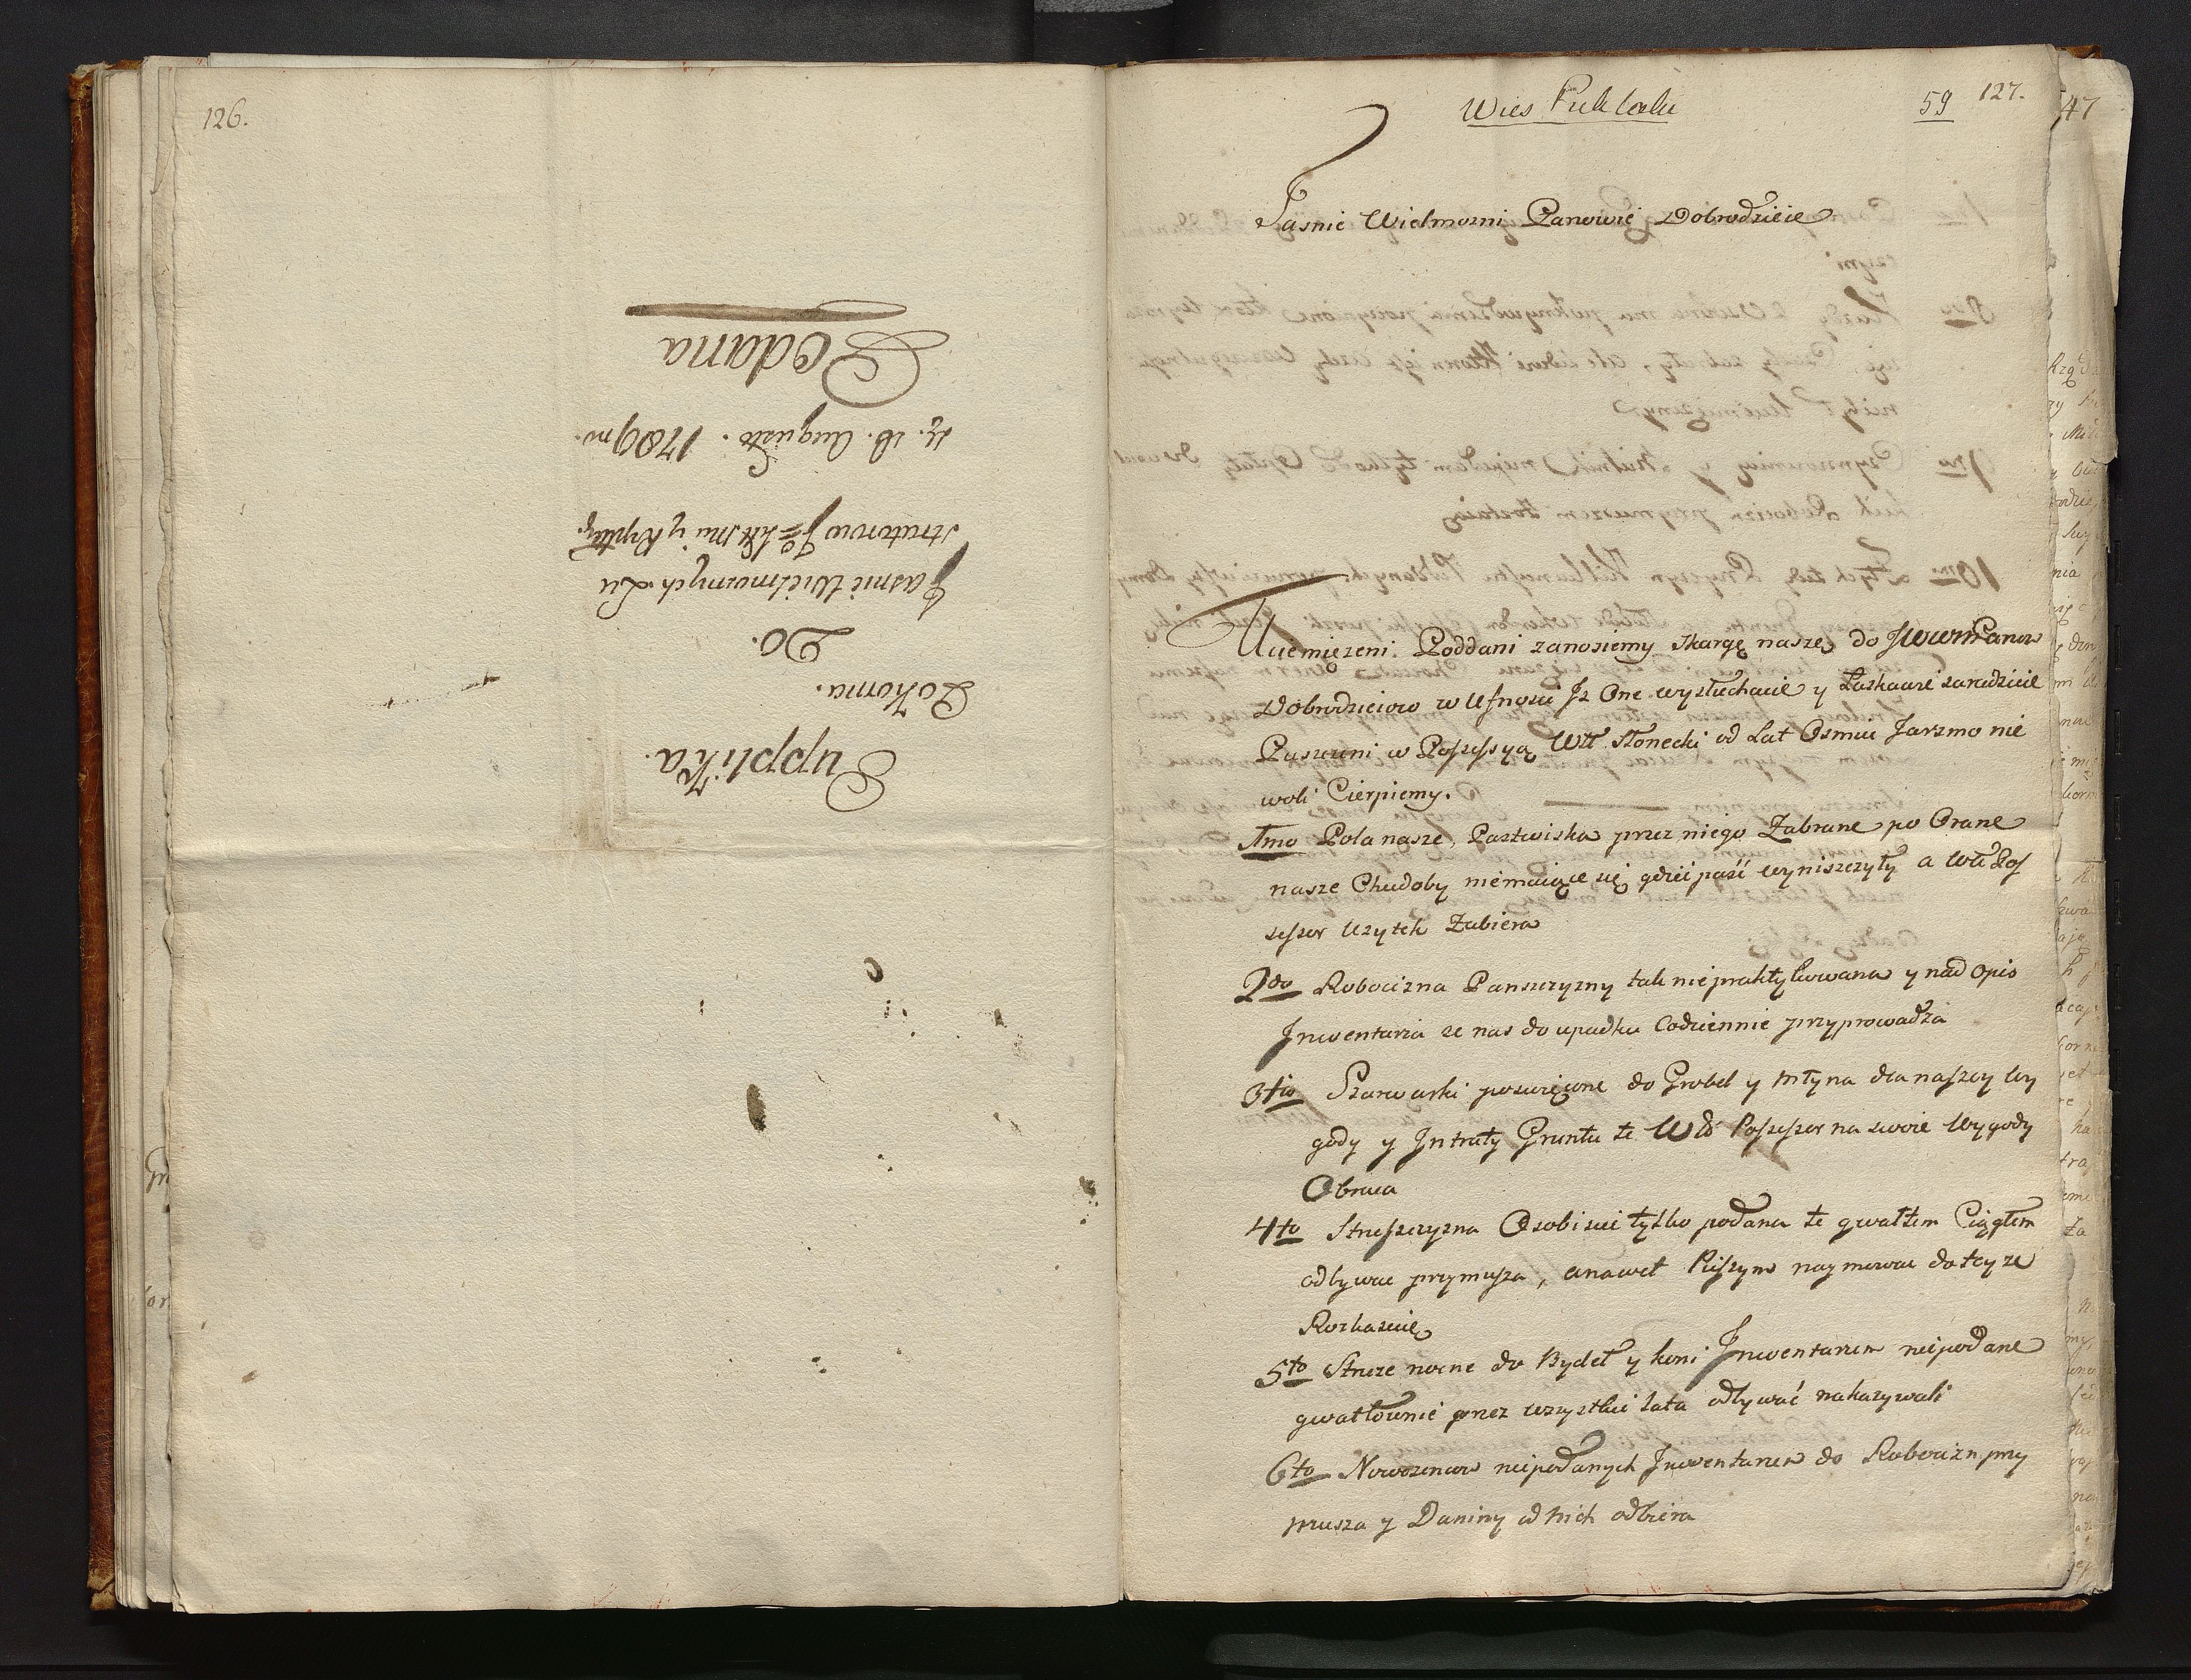 126.
Supplika.
Pokorna.
Do.
Jasnie Wielmoznych Lu
stratorow
d. 18. Augusti. 1789no.
Podana
Wies
59 127.
47
Jasnie Wielmozni Panowie Dobrodzieie
Uciemięzeni Poddani zanosiemy skargę nasze do JWWWPanow
Dobrodzieiow w Ufnosci Jz One wysłuchacie y Łaskawie zaradzicie
Puszczeni w Possessyą WU Słonecki od Lat Osmiu Jarzmo nie
woli Cierpiemy.
1mo Pola nasze, Pastwiska przez niego Zabrane po Orane
nasze Chudoby niemaiące się gdzie paść wyniszczyły a WU Pos
sessor Uzytek Zabiera
2do Robocizna Panszczyzny tak nie praktykowana y nad Opis
Inwentarza ze nas do upadku Codziennie przyprowadza
3tio Szarwarki poswięcone do Grobel y Młyna dla naszey Wy
gody y Intraty Gruntu te WU Possessor na swoie Wygody
Obraca
4to Struższczyzna Osobiscie tylko podana te gwałtem Ciągłem
odbywac przymusza, a nawet Pieszym naymowac do tey ze
Rozkazuie
5to Stroze nocne do Bydeł y koni Inwentarzem nie podane
gwałtownie przez wszystkie lata odbywać nakazywali
6to Nowozencow nie podanych Inwentarzem do Robocizn przy
musza y Daniny od nich odbiera